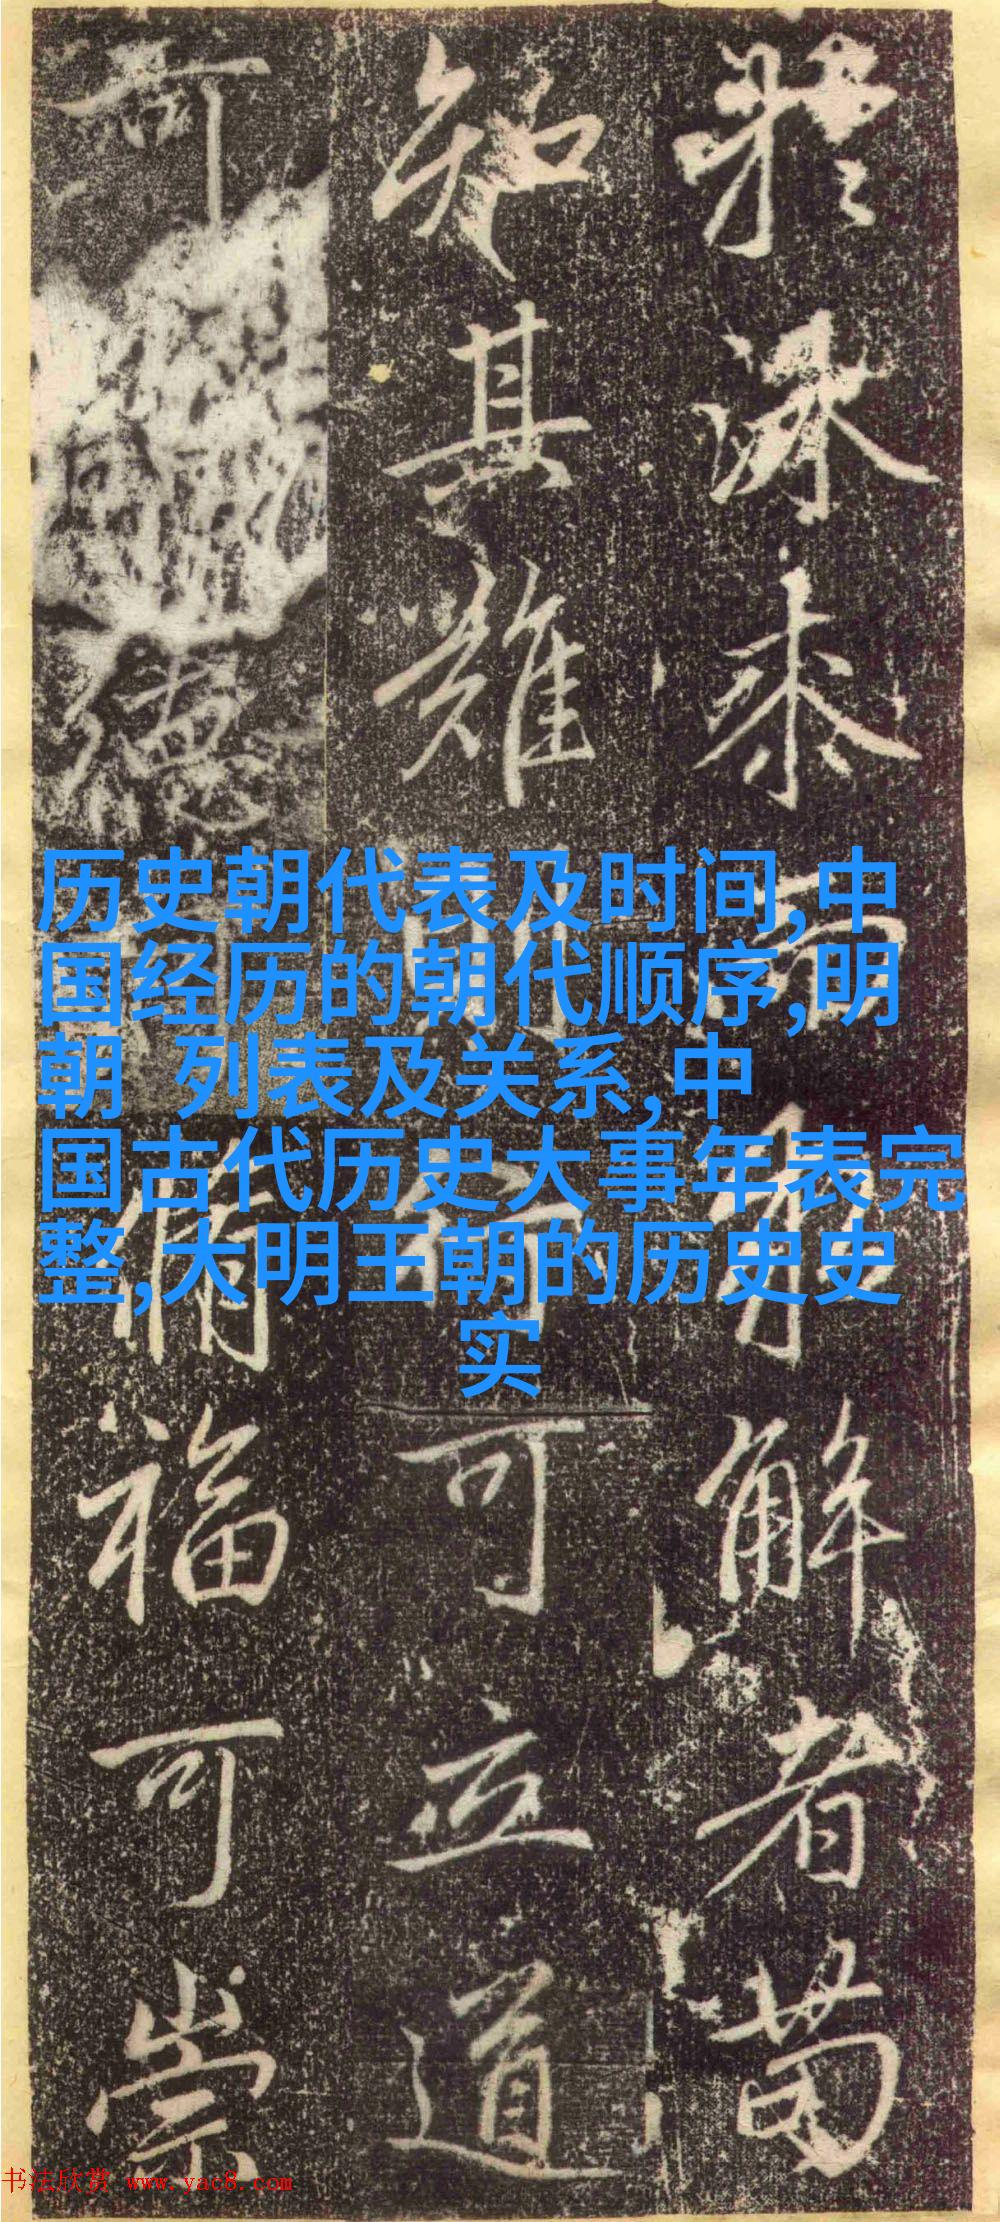 解者苟
知其難可立道
可德脩福可崇
历史朝代表及时间,中
国经历的朝代顺序,明
朝 列表及关系,中
国古代历史大事年表完
整,大明王朝的历史史
实
书法欣赏 www.yac8.com